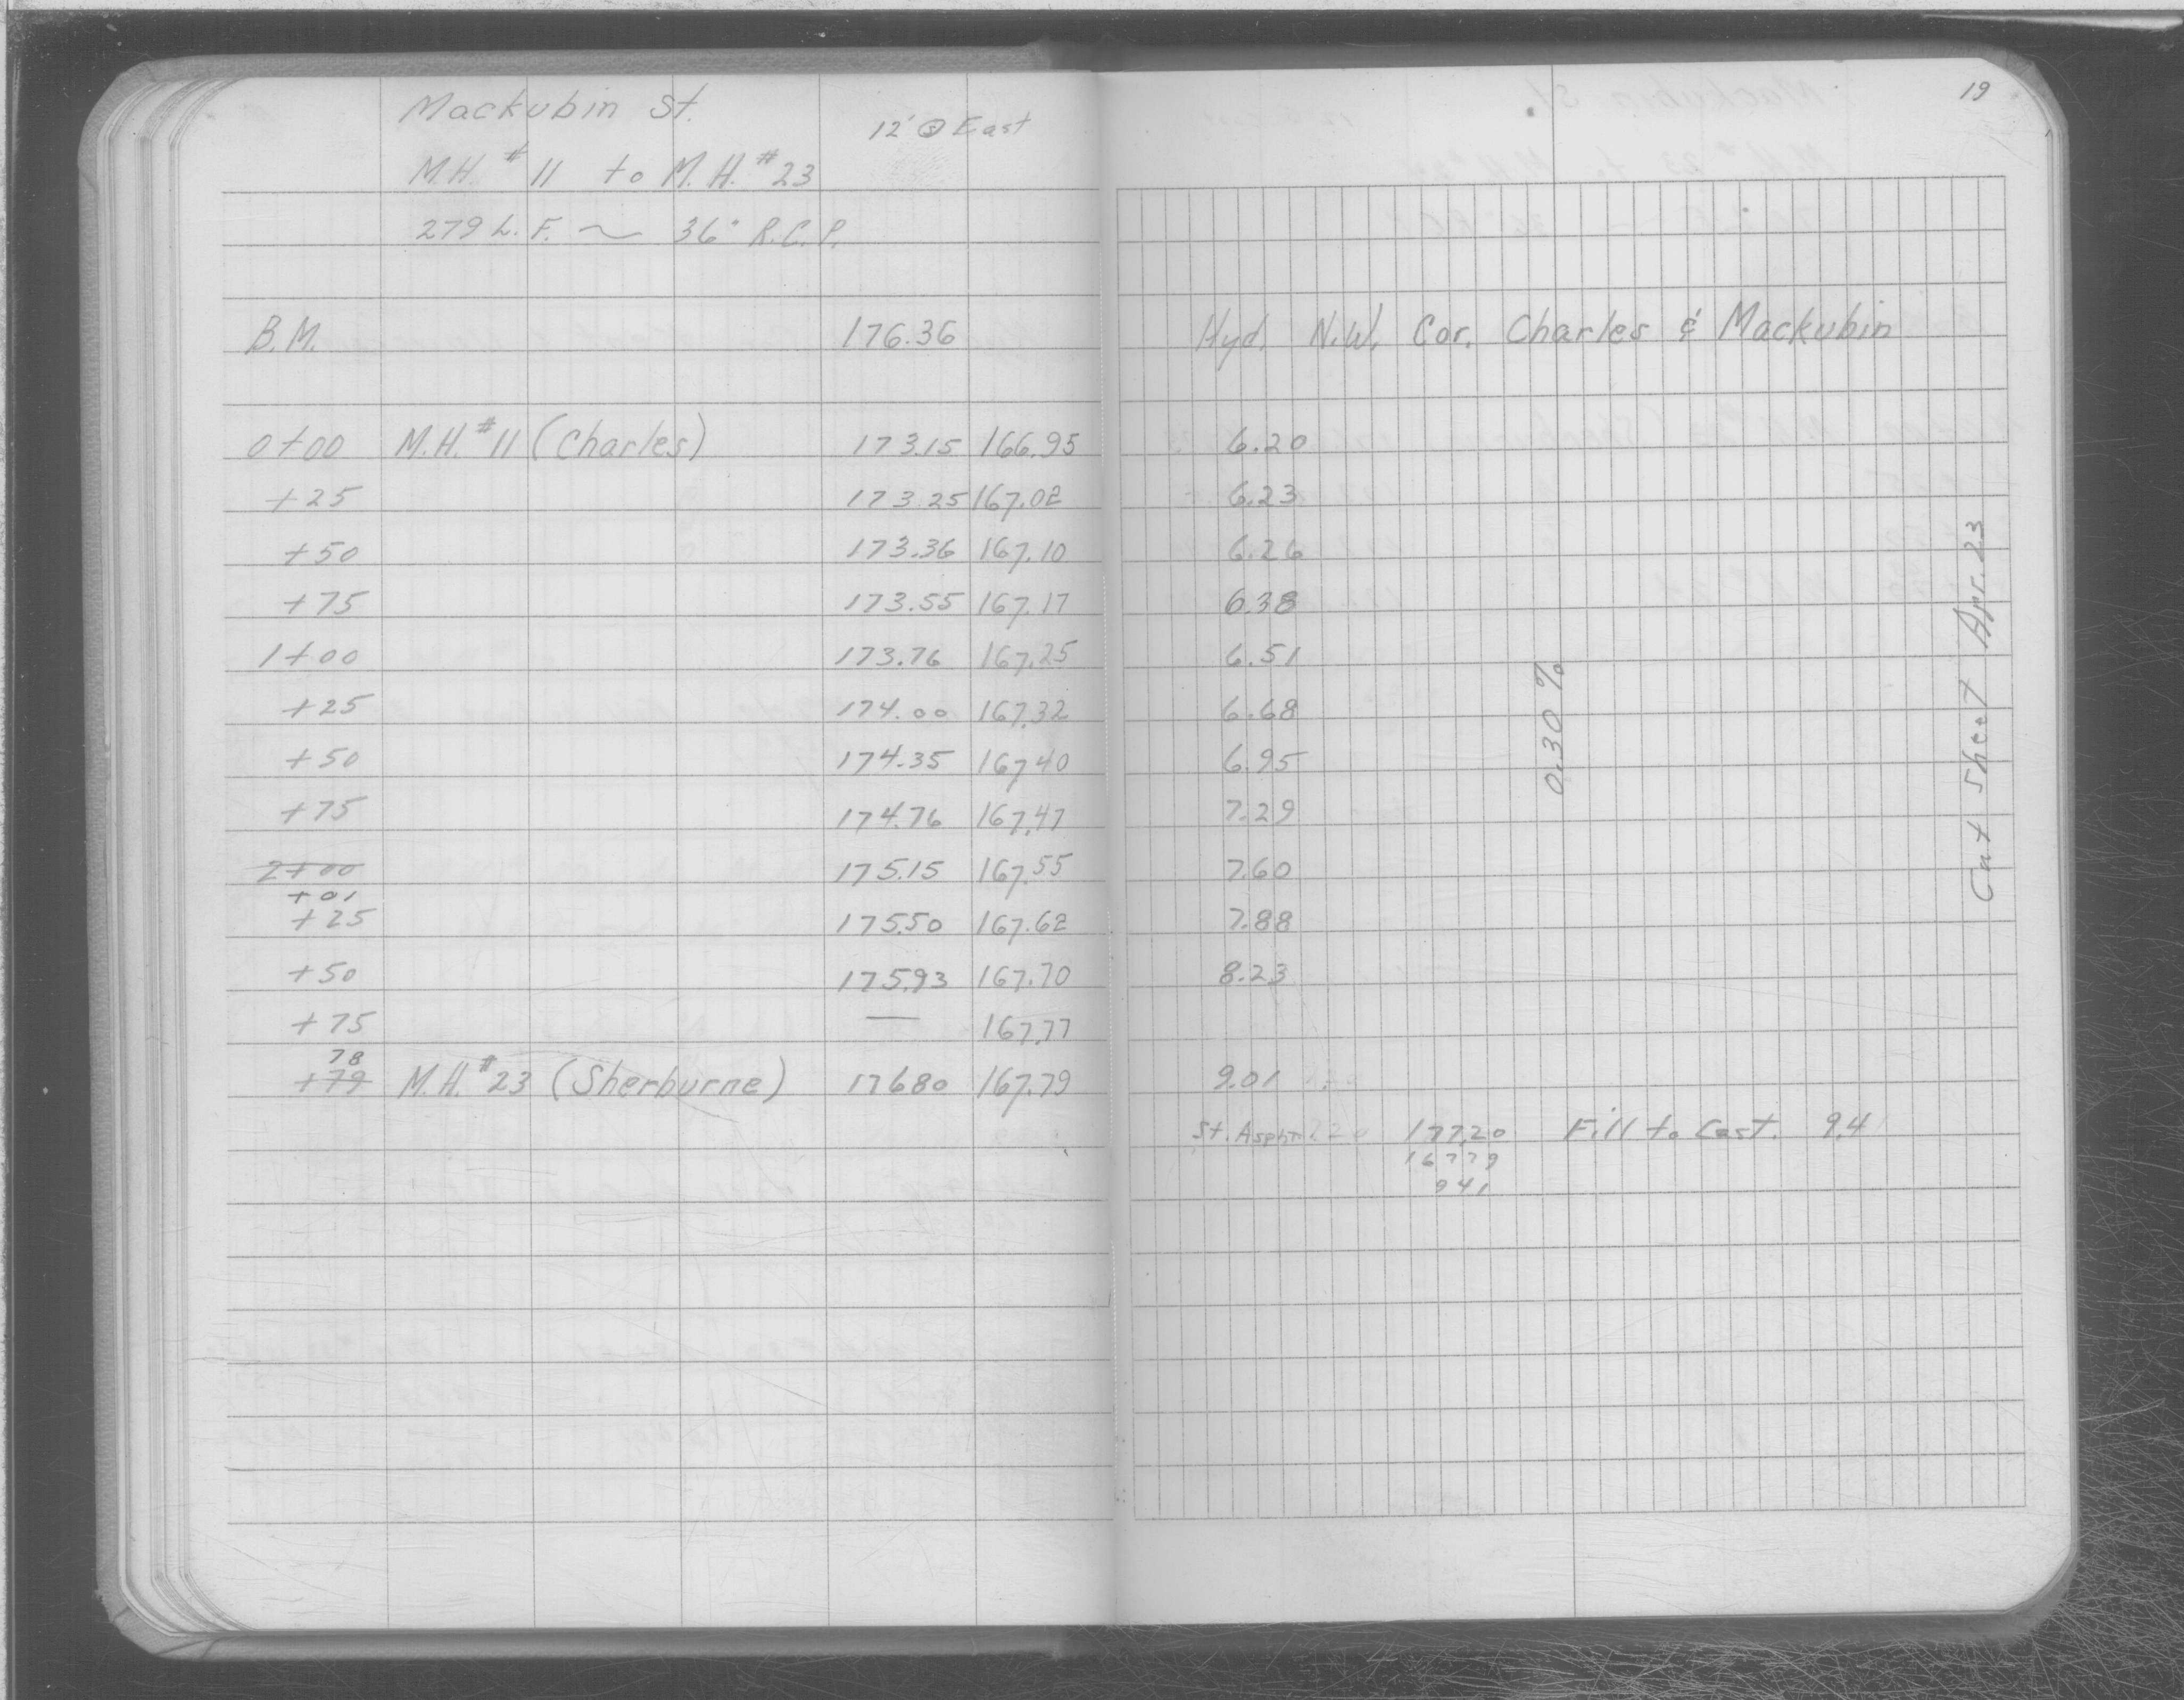 19
Mackubin St. 12' @ East
M.H. #11 to M.H. #23
279 L.F. ~ 36" R.C.P.
B.M. 176.36 Hyd. N.W. Cor. Charles & Mackubin
0+00 M.H. #11 (Charles) 173.15 166.95 6.20
+25 173.25 167.02 6.23
+50 173.36 167.10 6.26
+75 173.55 167.17 6.38
1+00 173.76 167.25 6.51
+25 174.00 167.32 6.68
+50 174.35 167.40 6.95
+75 174.76 167.47 7.29
2+00 175.15 167.55 7.60
+01
+25 175.50 167.62 7.88
+50 175.93 167.70 8.23
+75 — 167.77
78
+79 M.H. #23 (Sherburne) 176.80 167.79 9.01
St. Asph. 177.20 Fill to Cast. 9.4
167 79
9 41
0.30 %
Cut Sheet Apr. 23